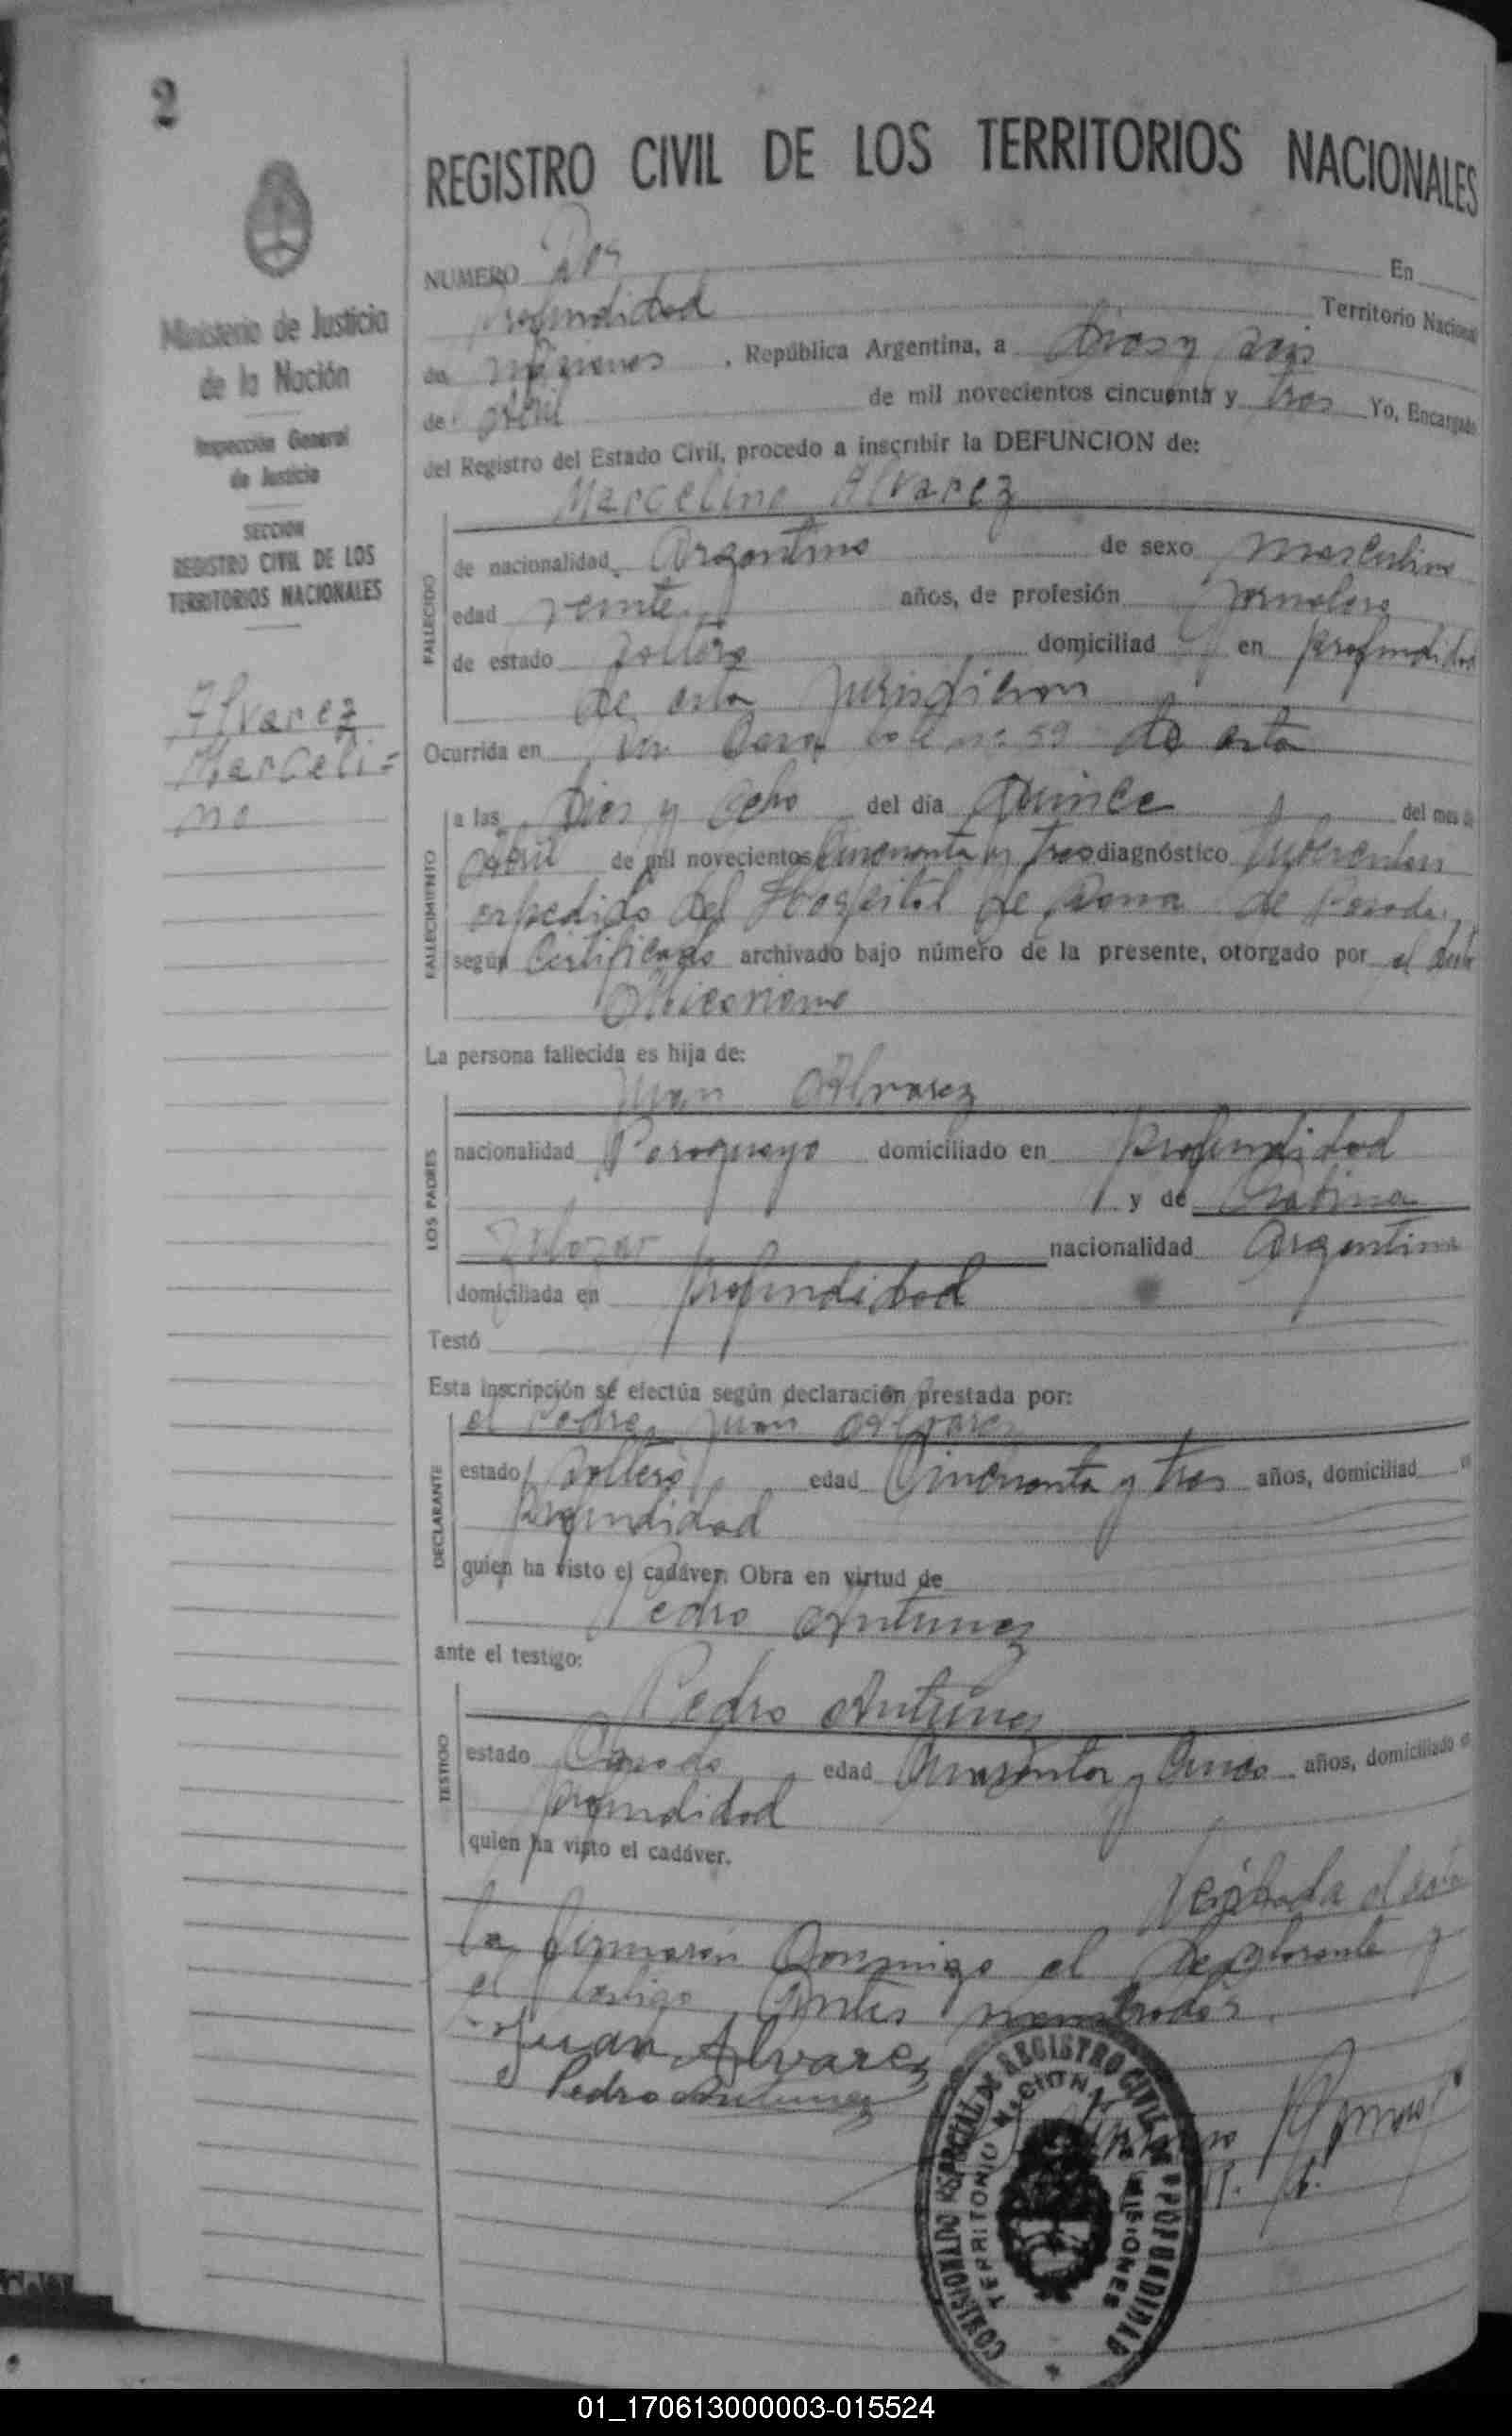 2
REGISTRO CIVIL DE LOS TERRITORIOS NACIONALES
Ministerio de Justicia
de la Nación
Inspección General
de Justicia
SECCION
REGISTRO CIVIL DE LOS
TERRITORIOS NACIONALES
Alvarez
Marceli=
no
NUMERO Dos En
profundidad Territorio Nacional
de misiones , República Argentina, a Dies y seis
de abril de mil novecientos cincuenta y tres Yo, Encargado
del Registro del Estado Civil, procedo a inscribir la DEFUNCION de:
Marcelino Alvarez
FALLECIDO
de nacionalidad Argentino de sexo masculino
edad veinte años, de profesión Jornalero
de estado soltero domiciliad en profundidad
de esta Jurisdicion
Ocurrida en su casa lote no 59 de esta
FALLECIMIENTO
a las Dies y ocho del día Quince del mes de
Abril de mil novecientos Cincuenta y tres diagnóstico
espedido del Hospital de de
según Certificado archivado bajo número de la presente, otorgado por el
La persona fallecida es hija de:
Juan Alvarez
LOS PADRES
nacionalidad Paraguayo domiciliado en profundidad
y de
nacionalidad Argentina
domiciliada en profundidad
Testó
Esta inscripción se efectúa según declaración prestada por:
el Padre Juan Alvarez
DECLARANTE
estado soltero edad Cincuenta y tres años, domiciliad
profundidad
quien ha visto el cadáver. Obra en virtud de
Pedro Antunez
ante el testigo:
Pedro Antunez
TESTIGO
estado Casado edad Cuarenta y Cinco años, domiciliado
profundidad
quien ha visto el cadáver.
Leida
la firmaron Conmigo el declarante y
el testigo Antes nombrados
Juan Alvarez
Pedro Antunez
REGISTRO CIVIL DE PROFUNDIDAD
TERRITORIO NACIONAL MISIONES
01_170613000003-015524